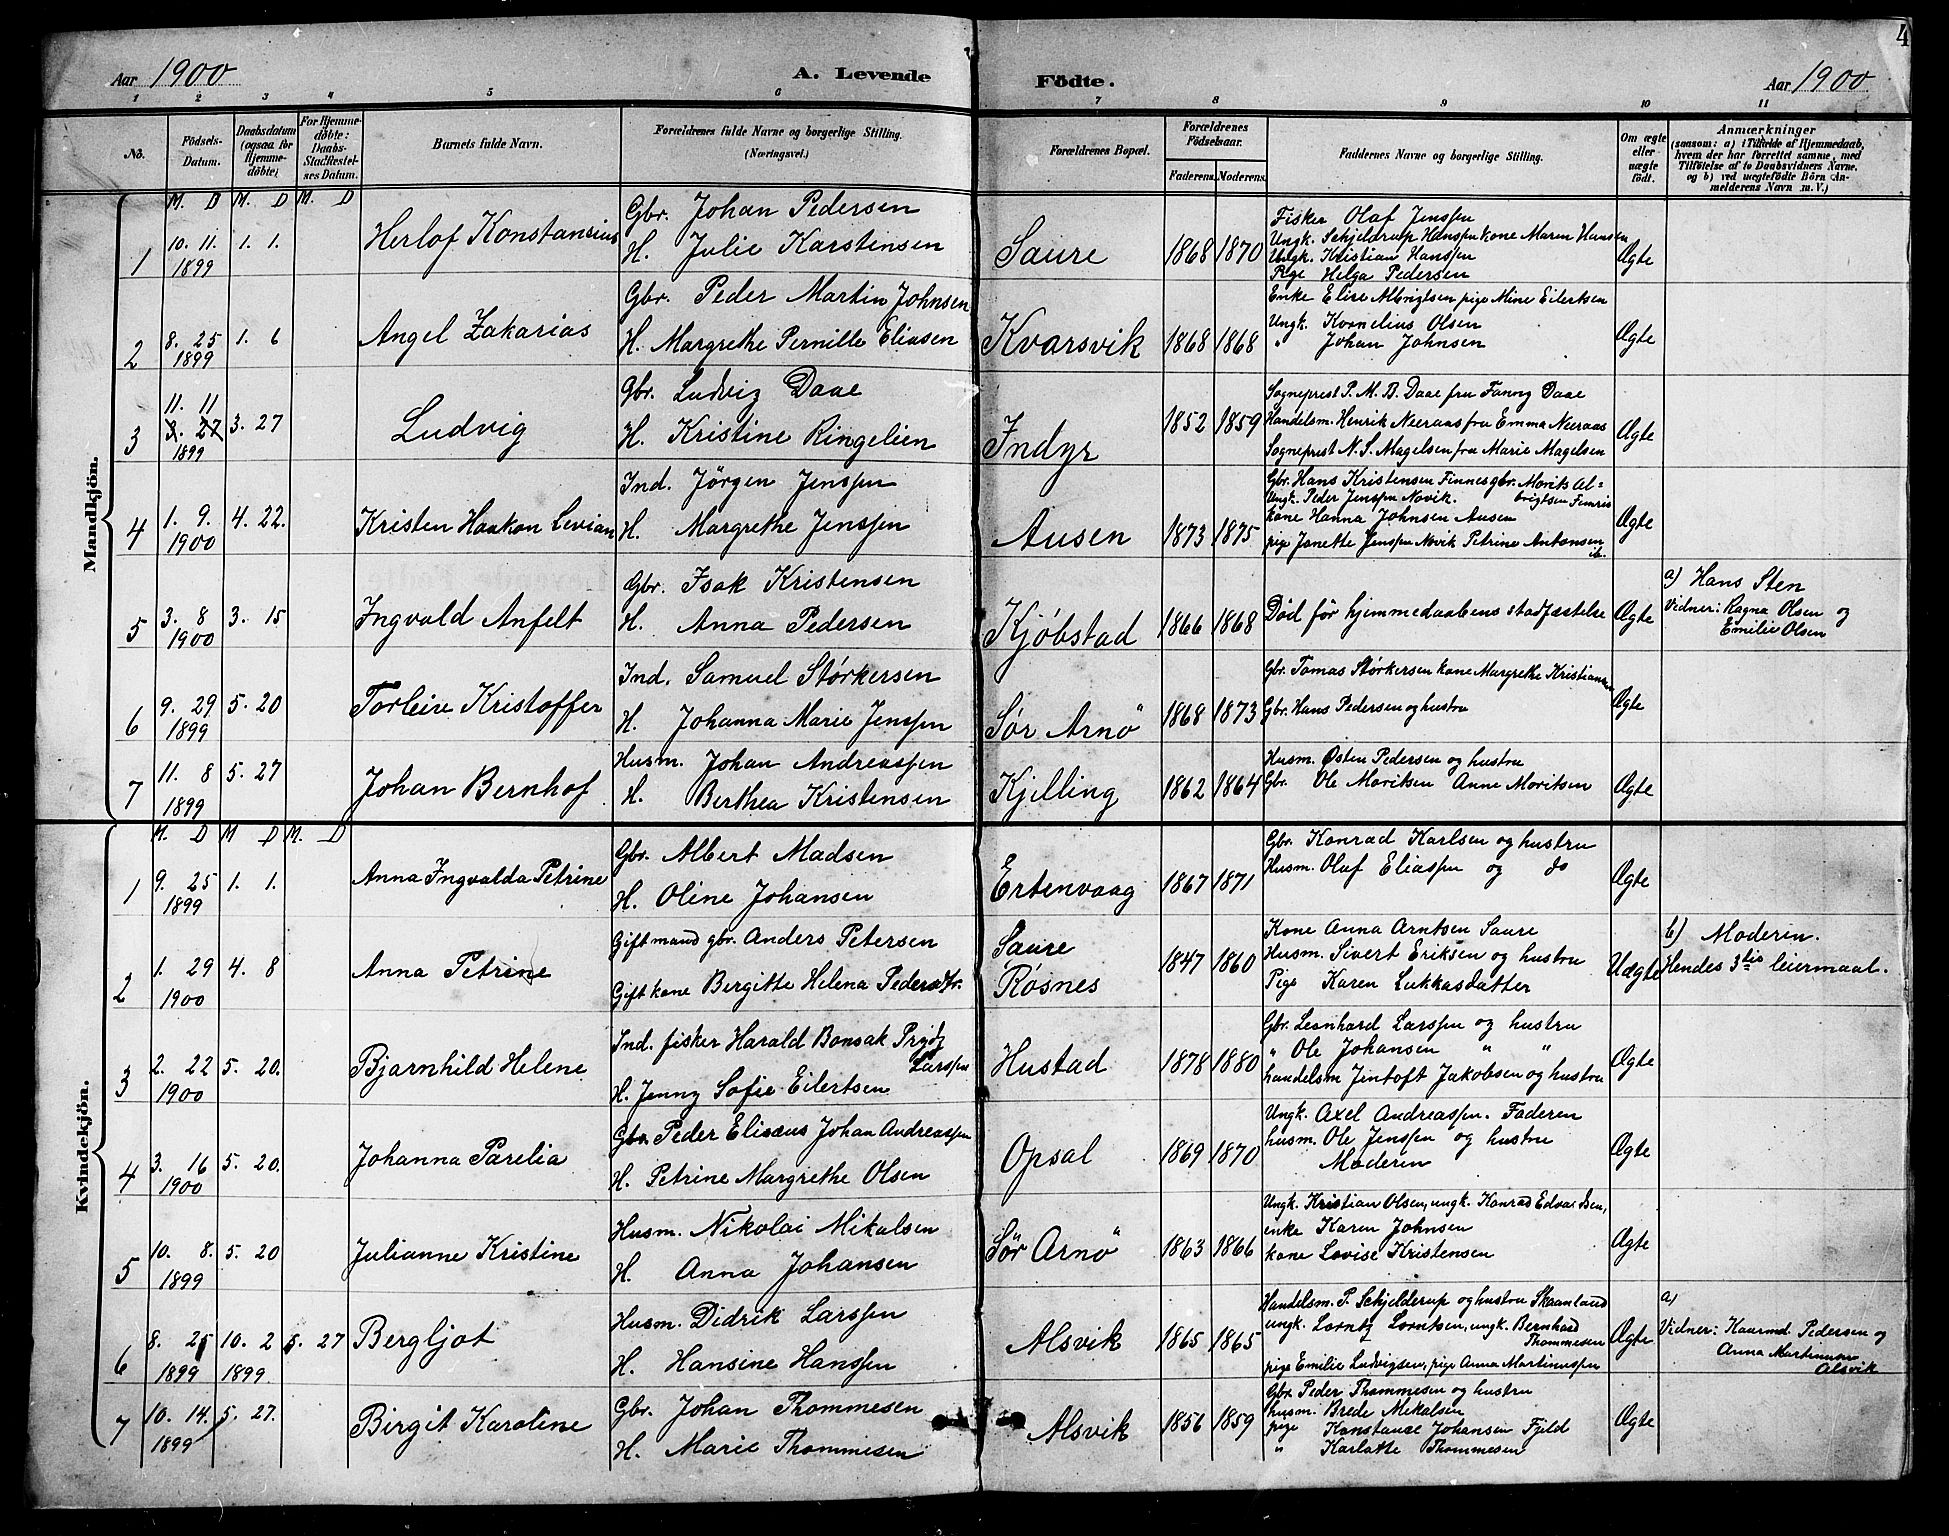 4
Aar 1900 A. Levende Födte. Aar 1900
1 2 3 4 5 6 7 8 9 10 11
No.
Födsels-Datum.
Daabsdatum (ogsaa for Hjemme-döbte)
For Hjemme-döbte: Daabs-Stadfæstel-ses Datum.
Barnets fulde Navn.
Forældrenes fulde Navne og borgerlige Stilling. (Næringsvei.)
Forældrenes Bopæl.
Forældrenes Födselsaar.
Faderens. Moderens.
Faddernes Navne og borgerlige Stilling.
Om ægte eller uægte födt.
Anmærkninger
(saasom: a) i Tilfælde af Hjemmedaab,
hvem der har forrettet samme, med
Tilföielse af to Daabsvidners Navne,
og b) ved uægtefödte Börn An-
melderens Navn m. V.)
Mandkjön.
M. D M. D M. D
1 10. 11. 1899 1. 1. Herlof Konstansius
Gbr. Johan Pedersen
H. Julie Karstensen
Saure 1868 1870
Fisker Olaf Jenssen
Ungk. Schjelderup Hanssen kone Maren Hansen
Ungk. Kristian Hanssen
Pige Helga Pedersen
Ægte
2 8. 25 1899 1. 6 Angel Zakarias
Gbr. Peder Martin Johnsen
H. Margrethe Pernille Eliasen
Kvarsvik 1868 1868
Enke Elise Albrigtsen pige Mine Eilertsen
Ungk. Kornelius Olsen
" Johan Johnsen
Ægte
3 11. 11 3. 27 1899 3. 27 Ludvig
Gbr. Ludvig Daae
H. Kristine Ringelien
Indyr 1852 1859
Sogneprest P. M. B. Daae fru Fanny Daae
Handelsm. Henrik Neeraas fru Emma Neeraas
Sogneprest N. S. Magelsen fru Marie Magelsen
Ægte
4 1. 9. 1900 4. 22. Kristen Haakon Levian
Ind. Jörgen Jenssen
H. Margrethe Jenssen
Ausen 1873 1875
Gbr. Hans Kristensen Finnes gbr. Morits Al=
Ungk. Peder Jenssen Novik. brigtsen
kone Hanna Johnsen Ausen
pige Janette Jenssen Novik Petrine Antonsen
ib.
Ægte
5 3. 8 1900 3. 15 Ingvald Anfelt
Gbr. Isak Kristensen
H. Anna Pedersen
Kjøbstad 1866 1868
Død før hjemmedaabens stadfæstelse
Ægte
a) Hans Sten
Vidner: Ragna Olsen og
Emilie Olsen
6 9. 29 1899 5. 20 Torleiv Kristoffer
Ind. Samuel Størkersen
H. Johanna Marie Jenssen
Sør Arnö 1868 1873
Gbr. Tomas Størkersen kone Margrethe Kristiansen
Gbr. Hans Pedersen og hustru
Ægte
7 11. 8 1899 5. 27 Johan Bernhof.
Husm. Johan Andreassen
H. Berthea Kristensen
Kjelling 1862 1864
Husm. Østen Pedersen og hustru
Gbr. Ole Moritsen Anne Moritsen
Ægte
Kvindekjön.
M. D M D M. D
1 9. 25 1899 1. 1. Anna Ingvalda Petrine
Gbr. Albert Madsen
H. Oline Johansen
Ertenvaag 1867 1871
Gbr. Konrad Karlsen og hustru
Husm. Olaf Eliassen og do
Ægte
2 1. 29 1900 4. 8 Anna Petrine
Gift mand gbr. Anders Petersen
Gift kone Bergitte Helena Pedersdtr.
Saure
Røsnes
1847 1860
Kone Anna Arntsen Saure
Husm. Sivert Eriksen og hustru
Pige Karen Lukkasdatter
Uægte
b) Moderen.
Hendes 3die leiermaal.
3 2. 22 1900 5. 20. Bjarnhild Helene
Ind. fisker Harald Bonsak Prydz
Larssen
H. Jenny Sofie Eilertsen
Hustad 1878 1880
Gbr. Leonhard Larssen og hustru
" Ole Johansen " "
handelsm Jentoft Jakobsen og hustru
Ægte
4 3. 16 1900 5. 20. Johanna Parelia
Gbr. Peder Elisæus Johan Andreassen
H. Petrine Margrethe Olsen
Opsal 1869 1870
Ungk. Axel Andreassen. Faderen
husm. Ole Jenssen og hustru
Moderen
Ægte
5 10. 8. 1899 5. 20 Julianne Kristine
Husm. Nikolai Mikalsen
H. Anna Johansen
Sör Arnö 1863 1866
Ungk. Kristian Olsen, ungk. Konrad Edvardsen,
enke Karen Johnsen
kone Lovise Kristensen
Ægte
6 8. 25 1899 10. 2 1899. 5. 27 Bergljot
Husm. Didrik Larssen
H. Hansine Hanssen
Alsvik 1865 1865
Handelsm. P. Schjelderup og hustru Skaanland
ungk. Lorntz Lorntsen, ungk. Bernhard
Thommesen
pige Emilie Ludvigsen, pige Anna Martinussen
Ægte
a)
Vidner: Pedersen og
Anna Martinussen
Alsvik
7 10. 14. 1899 5. 27. Birgit Karoline
Gbr. Johan Thommesen
H. Marie Thommesen
Alsvik 1856 1859
Gbr. Peder Thommesen og hustru
husm. Brede Mikalsen
pige Konstance Johansen Fjeld
" Karlotte Thommesen
Ægte